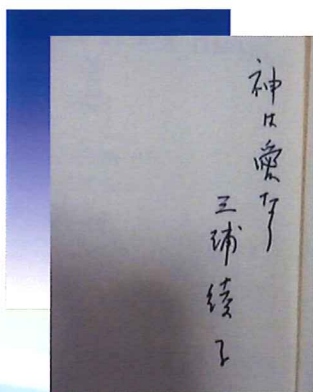 神は愛なり
三浦綾子